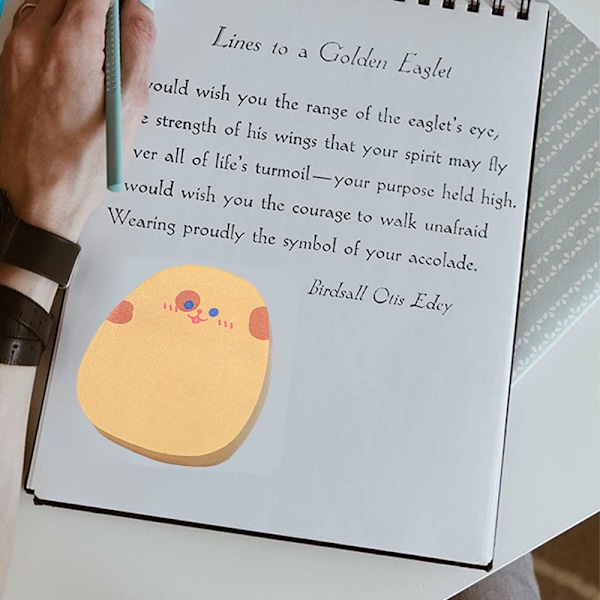 Lines to a Golden Eaglet
would wish you the range of the eaglet's eye,
strength of his wings that your spirit may fly
ver all of life's turmoil—your purpose held high.
would wish you the courage to walk unafraid
Wearing proudly the symbol of your accolade.
Birdsall Otis Edey